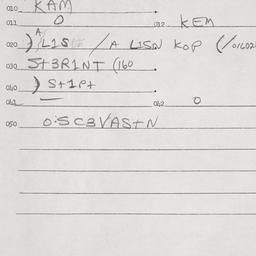 010 KAM
011 0 012 KEM
020 )L1S /A L1SN KOP (/01602
030 S+3R1NT (160
040 ) S+1P+
041 — 042 0
050 O:SCBVAS+N